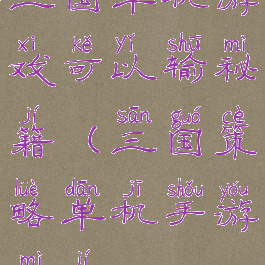 三国单机游
xì kě yǐ shū mì
戏可以输秘
jí sān guó cè
籍（三国策
lüè dān jī shǒu yóu
略单机手游
mì jí